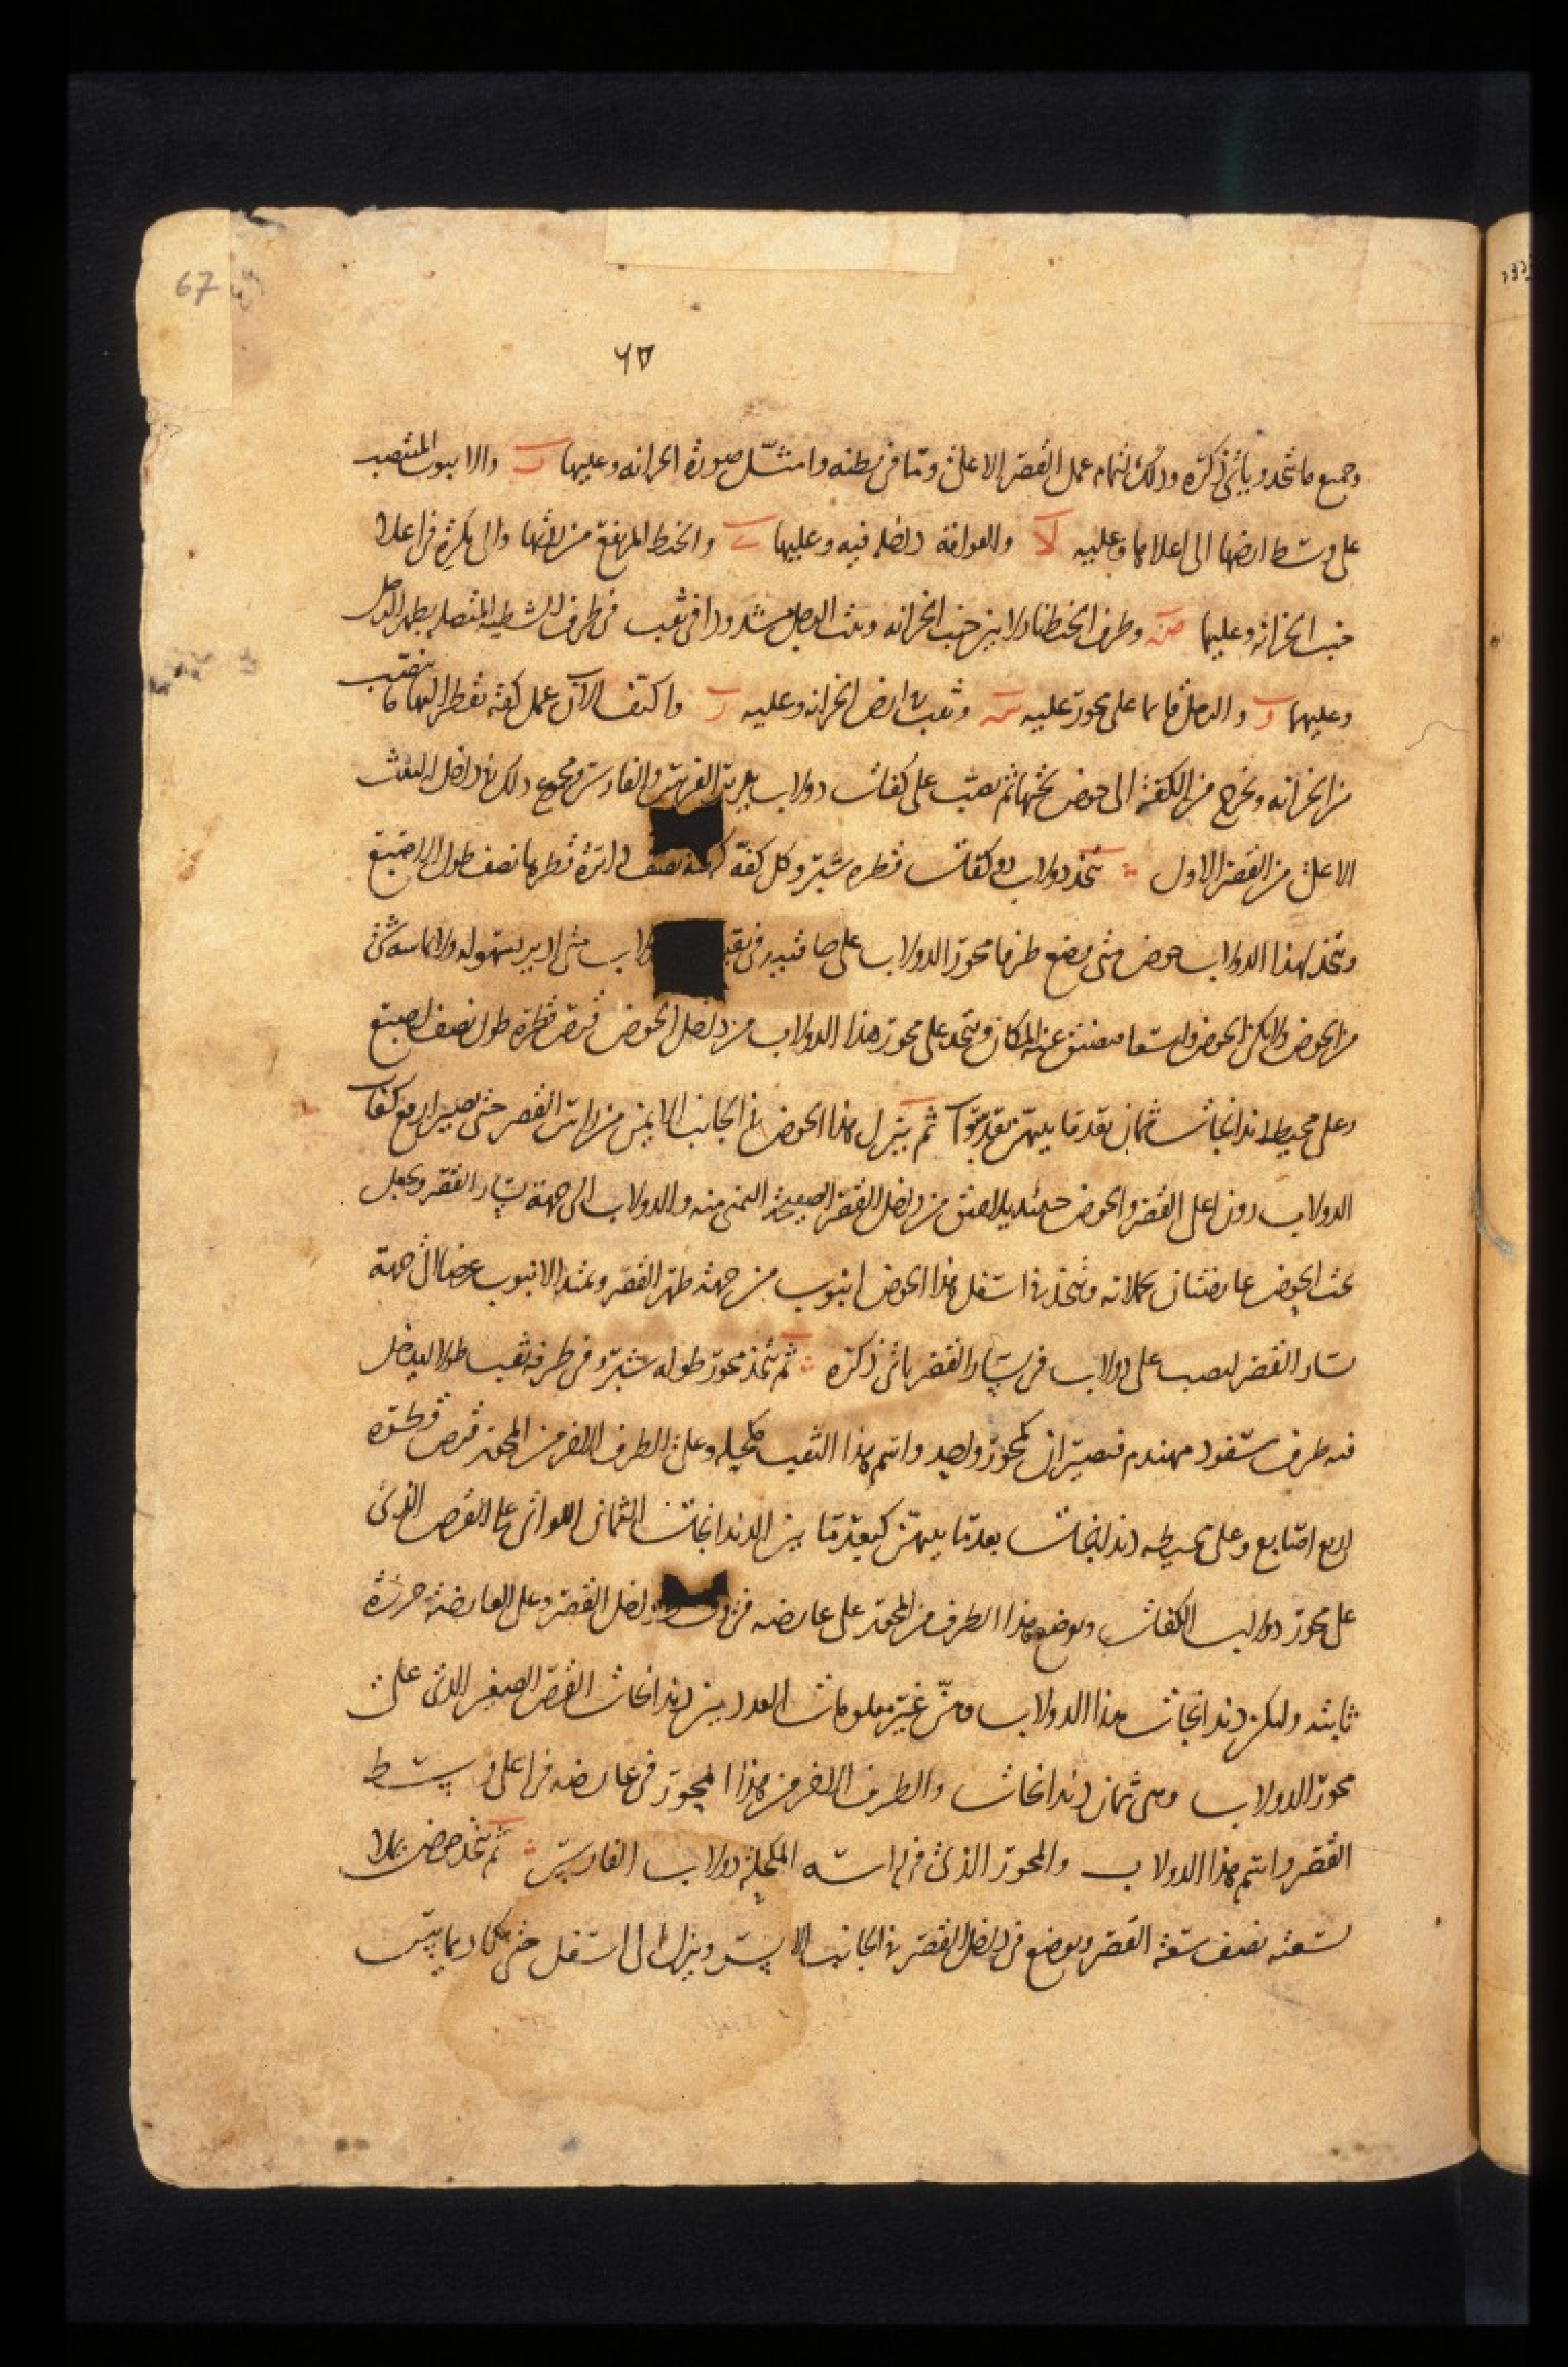 67
٦٥
وجميع ما يتخذ وياتي ذكره وذلك لتمام عمل القصر الاعلى وما في بطنه وامثل صورة الخزانه وعليها والانبوب المنتصب
على وسط ارضها الى اعلاها وعليه لا والعوامة داخله فيه وعليها والخيط المرتفع من الى بكرة في اعلا
جنب الخزانه وعليها صه وطرف الخيط نازلا بين جنب الخزانه وبيت الرجل مشدودا في ثقب في طرف الشظية المتصله بظهر الرجل
وعليها ر والرجل قائما على محور عليه وثقب في ارض الخزانه وعليه ر واكتف الان عمل كفة تقطر اليها ما ينصب
من الخزانه ويخرج من الكفة الى حوض تحتها ثم يصب على كفات دولاب يدير الفرس والفارس وجميع ذلك في داخل البيت
الاعلى من القصر الاول يتخذ دولاب ذو كفات قطره شبر وكل كفة نصف دائرة قطرها نصف طول الاصبع
ويتخذ لهذا الدولاب حوض متى وضع طرفا محور الدولاب على حافتيه في دولاب متى ادير بسهوله ولا يماسه شي
من الحوض ولا يكن الحوض واسعا فيضيق عنه المكان ويتخذ على محور هذا الدولاب من داخل الحوض قرص قطره طول نصف اصبع
وعلى محيطه دندانجات ثمان بعد ما بينهن بعد سوا ثم ينزل هذا الحوض في الجانب الايمن من راس القصر حتى يصير ارفع كفات
الدولاب دون اعلى القصر والحوض حينئذ يلاصق من داخل القصر الصفيحة اليمنى منه والدولاب الى جهة يسار القصر ويجعل
تحت الحوض عارضتان يحملانه ويتخذ في اسفل هذا الحوض انبوب من جهة ظهر القصر ويمتد الانبوب عرضا الى جهة
يسار القصر ليصب على دولاب في يسار القصر ياتي ذكره ثم يتخذ محور طوله شبر وفي طرفه ثقب طولا ليدخل
فيه طرف سفود مهندم فيصيران كمحور واحد واسم هذا الثقب مكحلة وعلى الطرف الاخر من المحور قرص قطره
اربع اصابع وعلى محيطه دندانجات بعد ما بينهن كبعد ما بين الدندانجات الثمان اللواتي على القرص الذي
على محور دولاب الكفات ويوضع هذا الطرف من المحور على عارضه في داخل القصر وعلى العارضة خرزة
ثابته وليكن دندانجات هذا الدولاب وهن غير معلومات العدد بين دندانجات القرص الصغير الذي على
محور الدولاب وهي ثمان دندانجات والطرف الاخر من هذا المحور في عارضه في اعلى وسط
القصر واسم هذا الدولاب والمحور الذي في راسه المكحلة دولاب الفارس ثم يتخذ حوض يملا
سعته نصف سعة القصر ويوضع في داخل القصر في الجانب الايسر وينزل الى اسفل حتى يكاد يماس